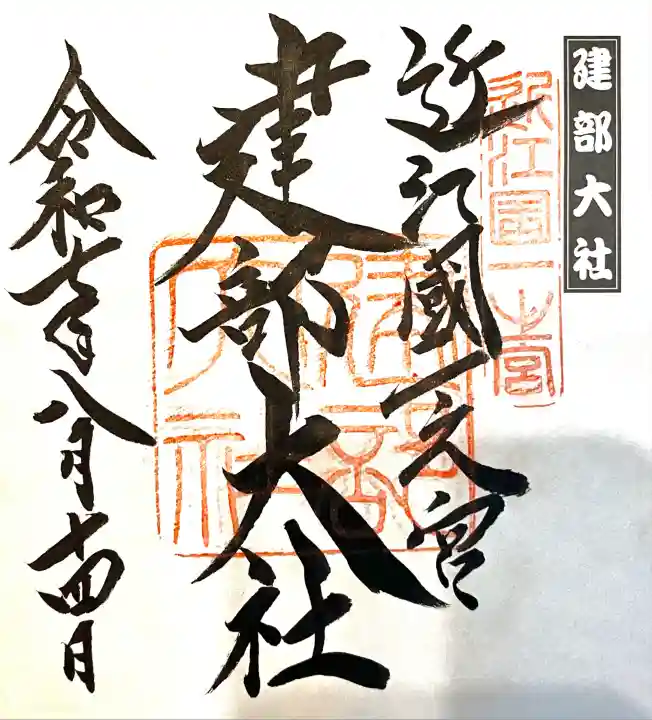 建部大社
近江国一之宮
近江國一之宮
建部大社
建部大社
令和七年八月十四日